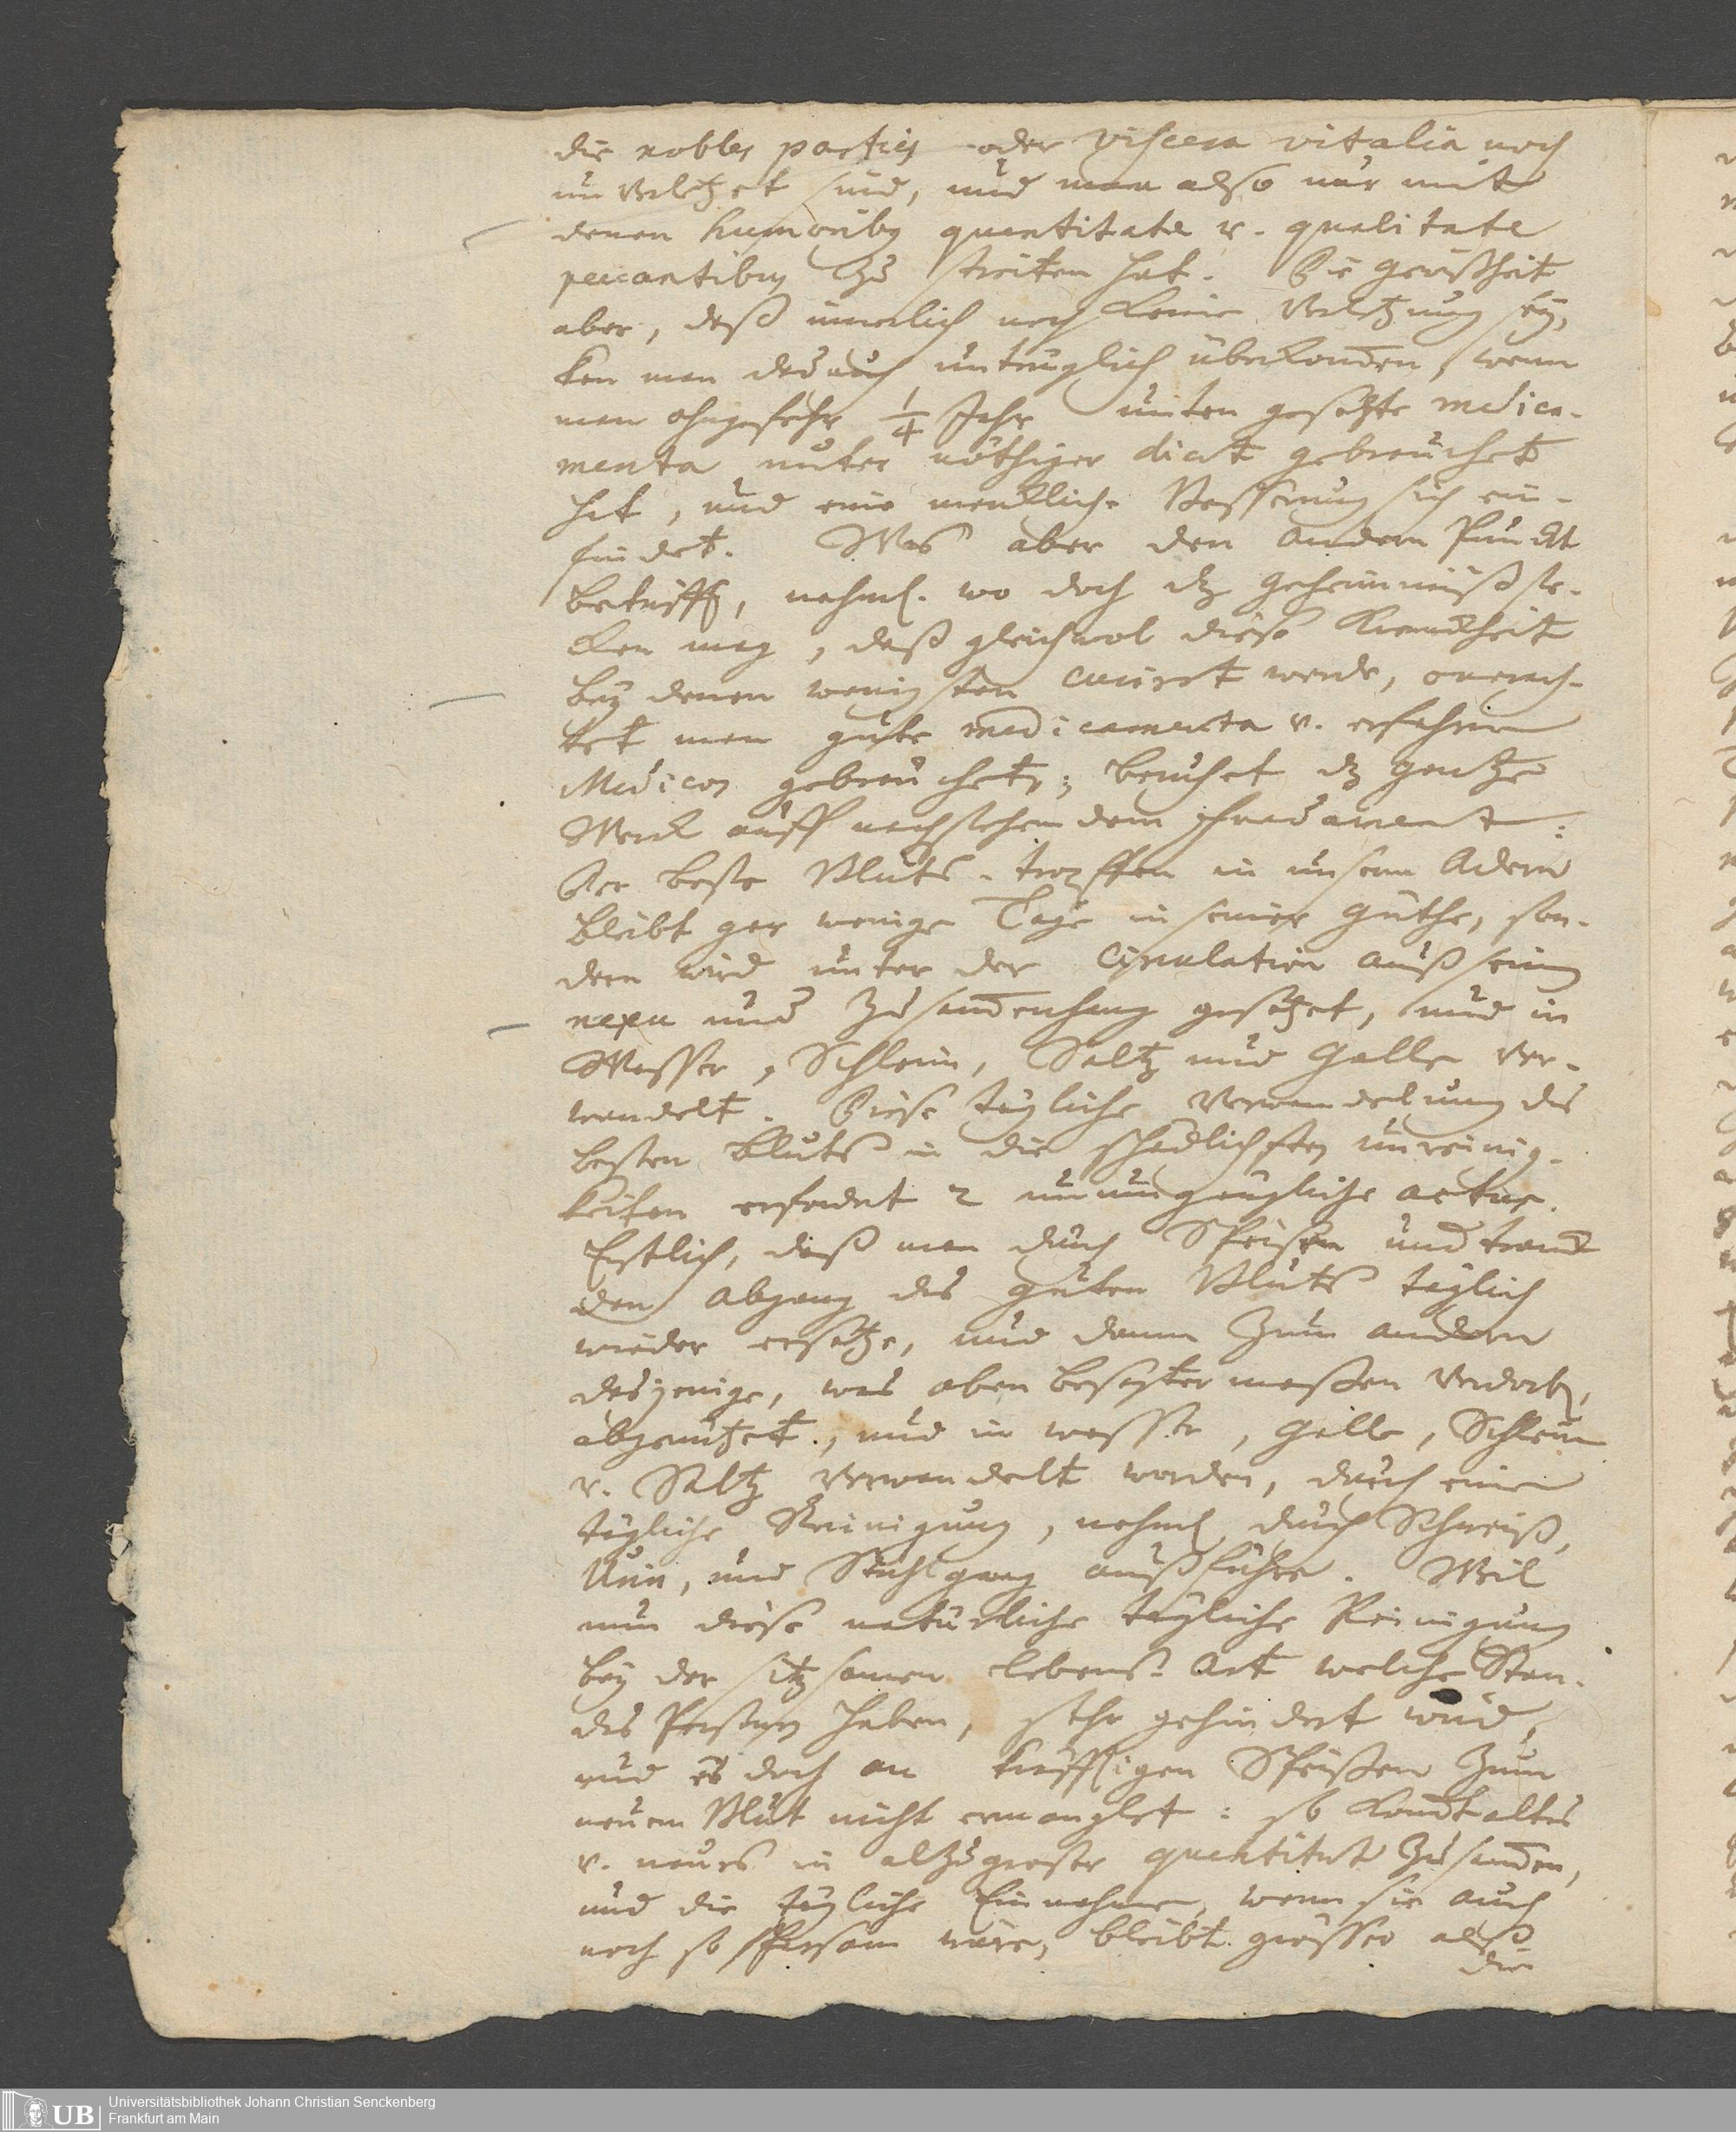 die nobles parties oder viscera vitalia noch
un Verletzet sind, und man also nur mit
denen humoribus quantitate v. qualitate
peccantibus zu streiten hat. Die Gewißheit
aber, daß innerlich noch keine Verletzung sey,
kan man dadurch untrüglich überkommen, wenn
man ohngefehr 1/4 Jahr unten gesetzte medica-
menta unter nöthiger diæt gebrauchet
hat, und eine merckliche Besserung sich ein-
findet. Was aber den andern Punckt
betrifft, nehml. wo doch dz geheimnüß ste-
cken mag, daß gleichwol diese Kranckheit
bey denen wenigsten curiret werde, onerach-
tet man gute medicamenta v. erfahrne
Medicos gebrauchet; beruhet dz gantze
Werck auff nachstehendem fundament:
Der beste Bluts-tropffen in unsern Adern
bleibt gar wenige Tage in seiner Güthe, son-
dern wird unter der Circulation auß seinem
nexu und Zusammenhang gesetzet, und in
Wasser, Schleim, Saltz und Galle ver-
wandelt. Diese tägliche Verwandelung des
besten Bluts in die schädlichsten unreinig-
keiten erfordert 2 unumgängliche actus.
Erstlich, daß man durch Speisen und tranck
den Abgang des guten Bluts täglich
wieder ersetze, und dann Zum andern
dasjenige, was oben besagter maßen Verdorben,
abgenützet, und in wasser, Galle, Schleim
v. Saltz Verwandelt worden, durch eine
tägliche Reinigung, nehml. durch Schweiß,
Urin, und Stuhlgang außführe. Weil
nun diese natürliche tägliche Reinigung
bey der sitzsamen Lebens-Art welche Stan-
des Personen haben, sehr gehindert wird,
und es doch an kräfftigen Speißen Zum
neuem Blut nicht ermanglet: so kommt altes
v. neues in alzugroßer quantität Zusammen,
und die tägliche Einnahme, wenn sie auch
noch so sparsam wäre, bleibt grösser alß
die
Universitätsbibliothek Johann Christian Senckenberg
Frankfurt am Main
UB